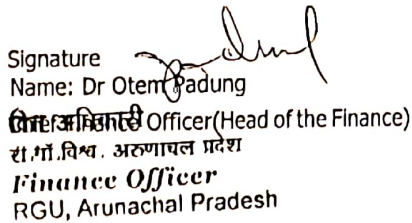 Signature
Name: Dr Otem Padung
Chief Finance Officer(Head of the Finance)
वित्त अधिकारी
रा.गाँ.विश्व. अरुणाचल प्रदेश
Finance Officer
RGU, Arunachal Pradesh